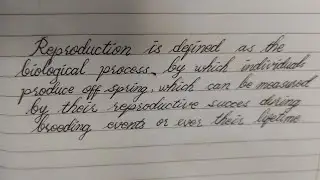 Reproduction is defined as the
biological process by which individuals
produce off spring, which can be measured
by their reproductive succes during
brooding events or over their lifetime